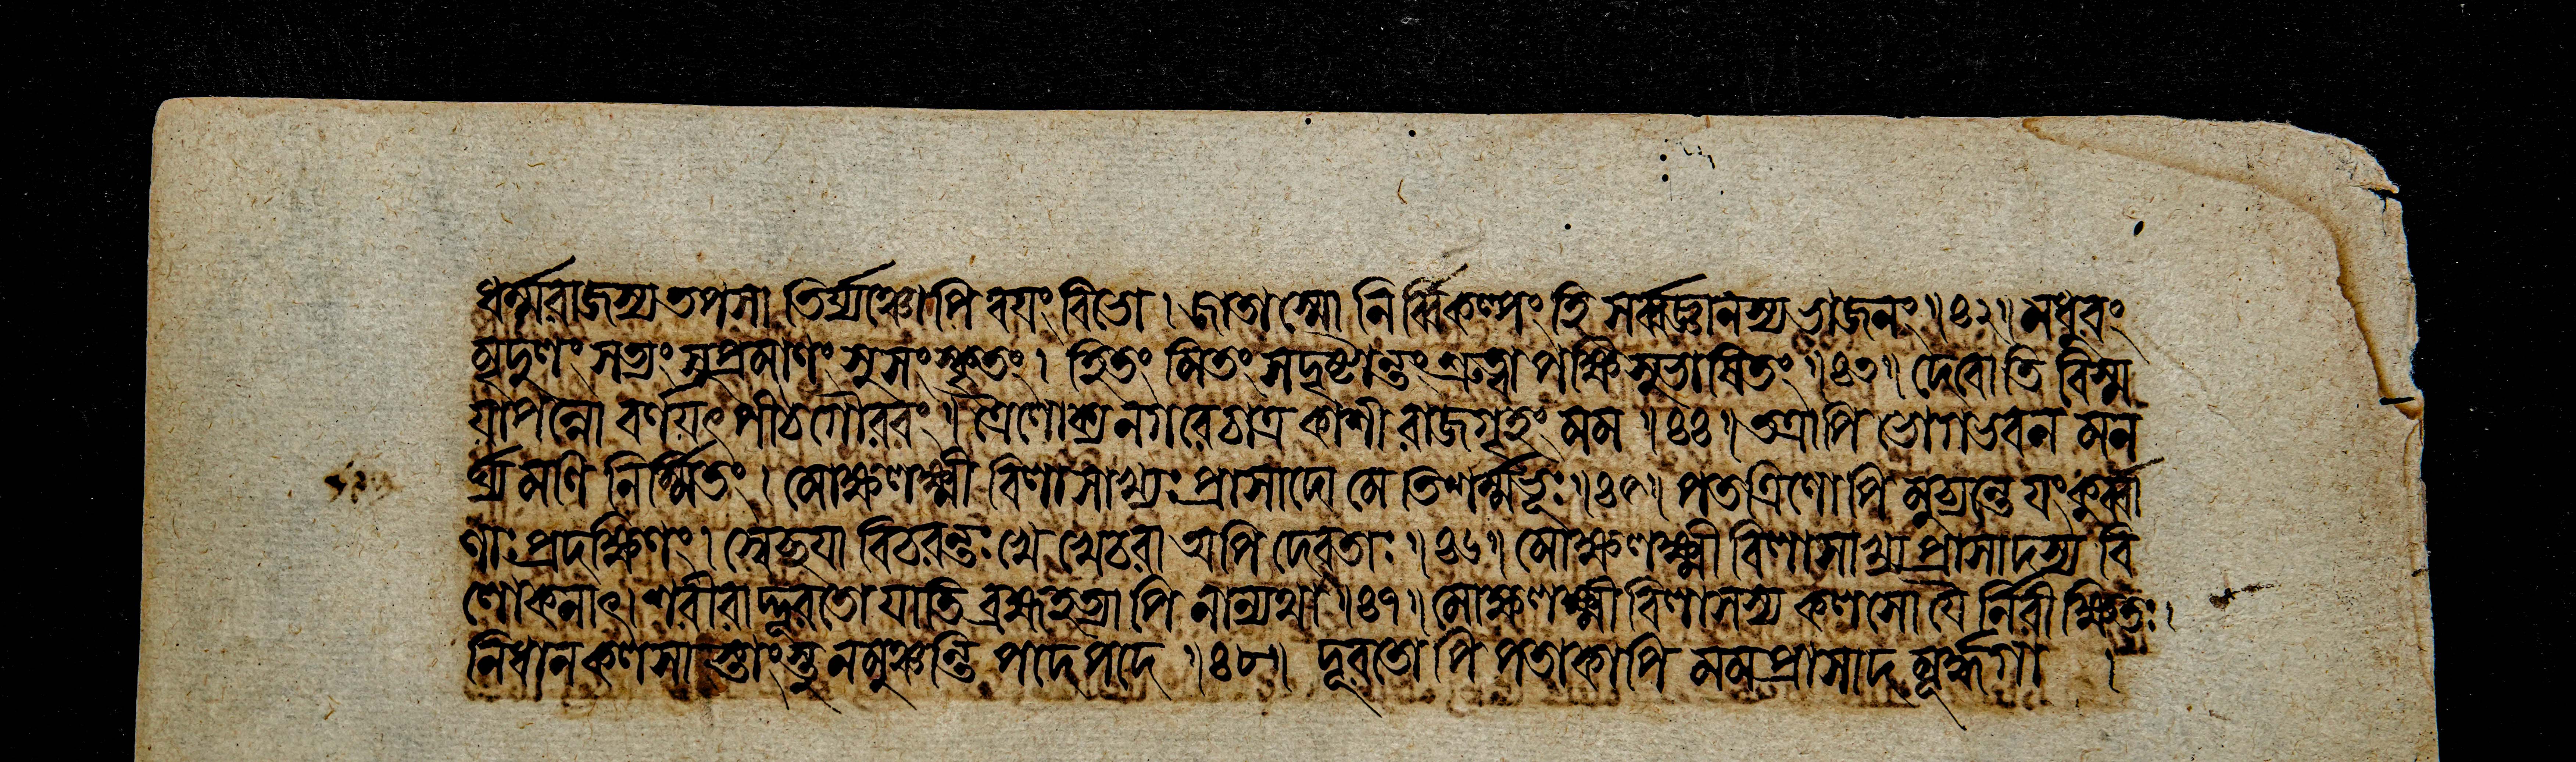 ধর্ম্মরাজস্য তপসা তির্য্যঞ্চোপি বয়ং বিভো । জাতাস্মো নির্ব্বিকল্পং হি সর্ব্বজ্ঞানস্য ভাজনং ॥৪২॥ মধুরং
মৃদুলং সত্যং সুপ্রমাণং সুসংস্কৃতং । হিতং মিতং সদৃষ্টান্তং শ্রুত্বা পক্ষিসুভাষিতং ॥৪৩॥ দেবোতি বিস্ম
য়াপন্নো বর্ণয়ৎ পীঠগৌরবং । ত্রৈলোক্যনগরেঠাত্র কাশী রাজগৃহং মম ॥৪৪॥ তত্রাপি ভোগভবন মন
র্ঘ্য মণি নির্ম্মিতং । মোক্ষলক্ষ্মী বিলাসাখ্যঃ প্রাসাদো মেতিশর্ম্মভূঃ ॥৪৫॥ পতত্রিণোপি মুচ্যন্তে যংকুর্ব্বা
ণাঃ প্রদক্ষিণং । স্বেচ্ছয়া বিচরন্তঃ খে খেচরা অপি দেবতাঃ ॥৪৬॥ মোক্ষলক্ষ্মী বিলাসাখ্য প্রাসাদস্য বি
লোকনাৎ । শরীরাদ্দূরতো যাতি ব্রহ্মহত্যাপি নান্যথা ॥৪৭॥ মোক্ষলক্ষ্মী বিলাসস্য কলসো যৈ র্নিরীক্ষিতঃ ।
নিধানকলসা স্তাংস্তু নমুঞ্চন্তি পদে পদে ॥৪৮॥ দূরতোপি পতাকাপি মম প্রাসাদ মূর্দ্ধগা ।